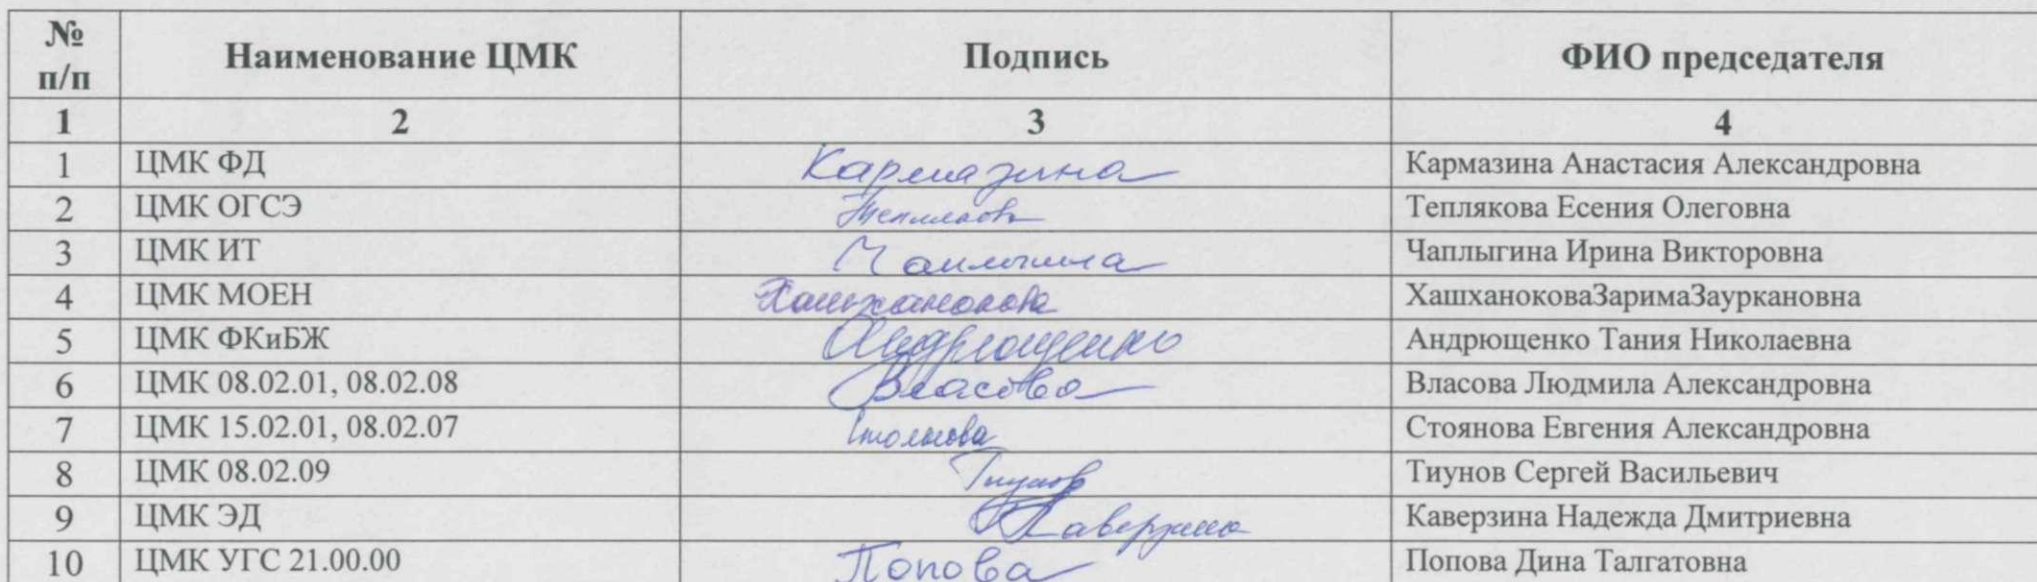 № п/п Наименование ЦМК Подпись ФИО председателя
1 2 3 4
1 ЦМК ФД Кармазина Кармазина Анастасия Александровна
2 ЦМК ОГСЭ Теплякова Есения Олеговна
3 ЦМК ИТ Чаплыгина Ирина Викторовна
4 ЦМК МОЕН Хашханокова ХашханоковаЗаримаЗауркановна
5 ЦМК ФКиБЖ Андрющенко Андрющенко Тания Николаевна
6 ЦМК 08.02.01, 08.02.08 Власова Власова Людмила Александровна
7 ЦМК 15.02.01, 08.02.07 Стоянова Евгения Александровна
8 ЦМК 08.02.09 Тиунов Тиунов Сергей Васильевич
9 ЦМК ЭД Каверзина Каверзина Надежда Дмитриевна
10 ЦМК УГС 21.00.00 Попова Попова Дина Талгатовна